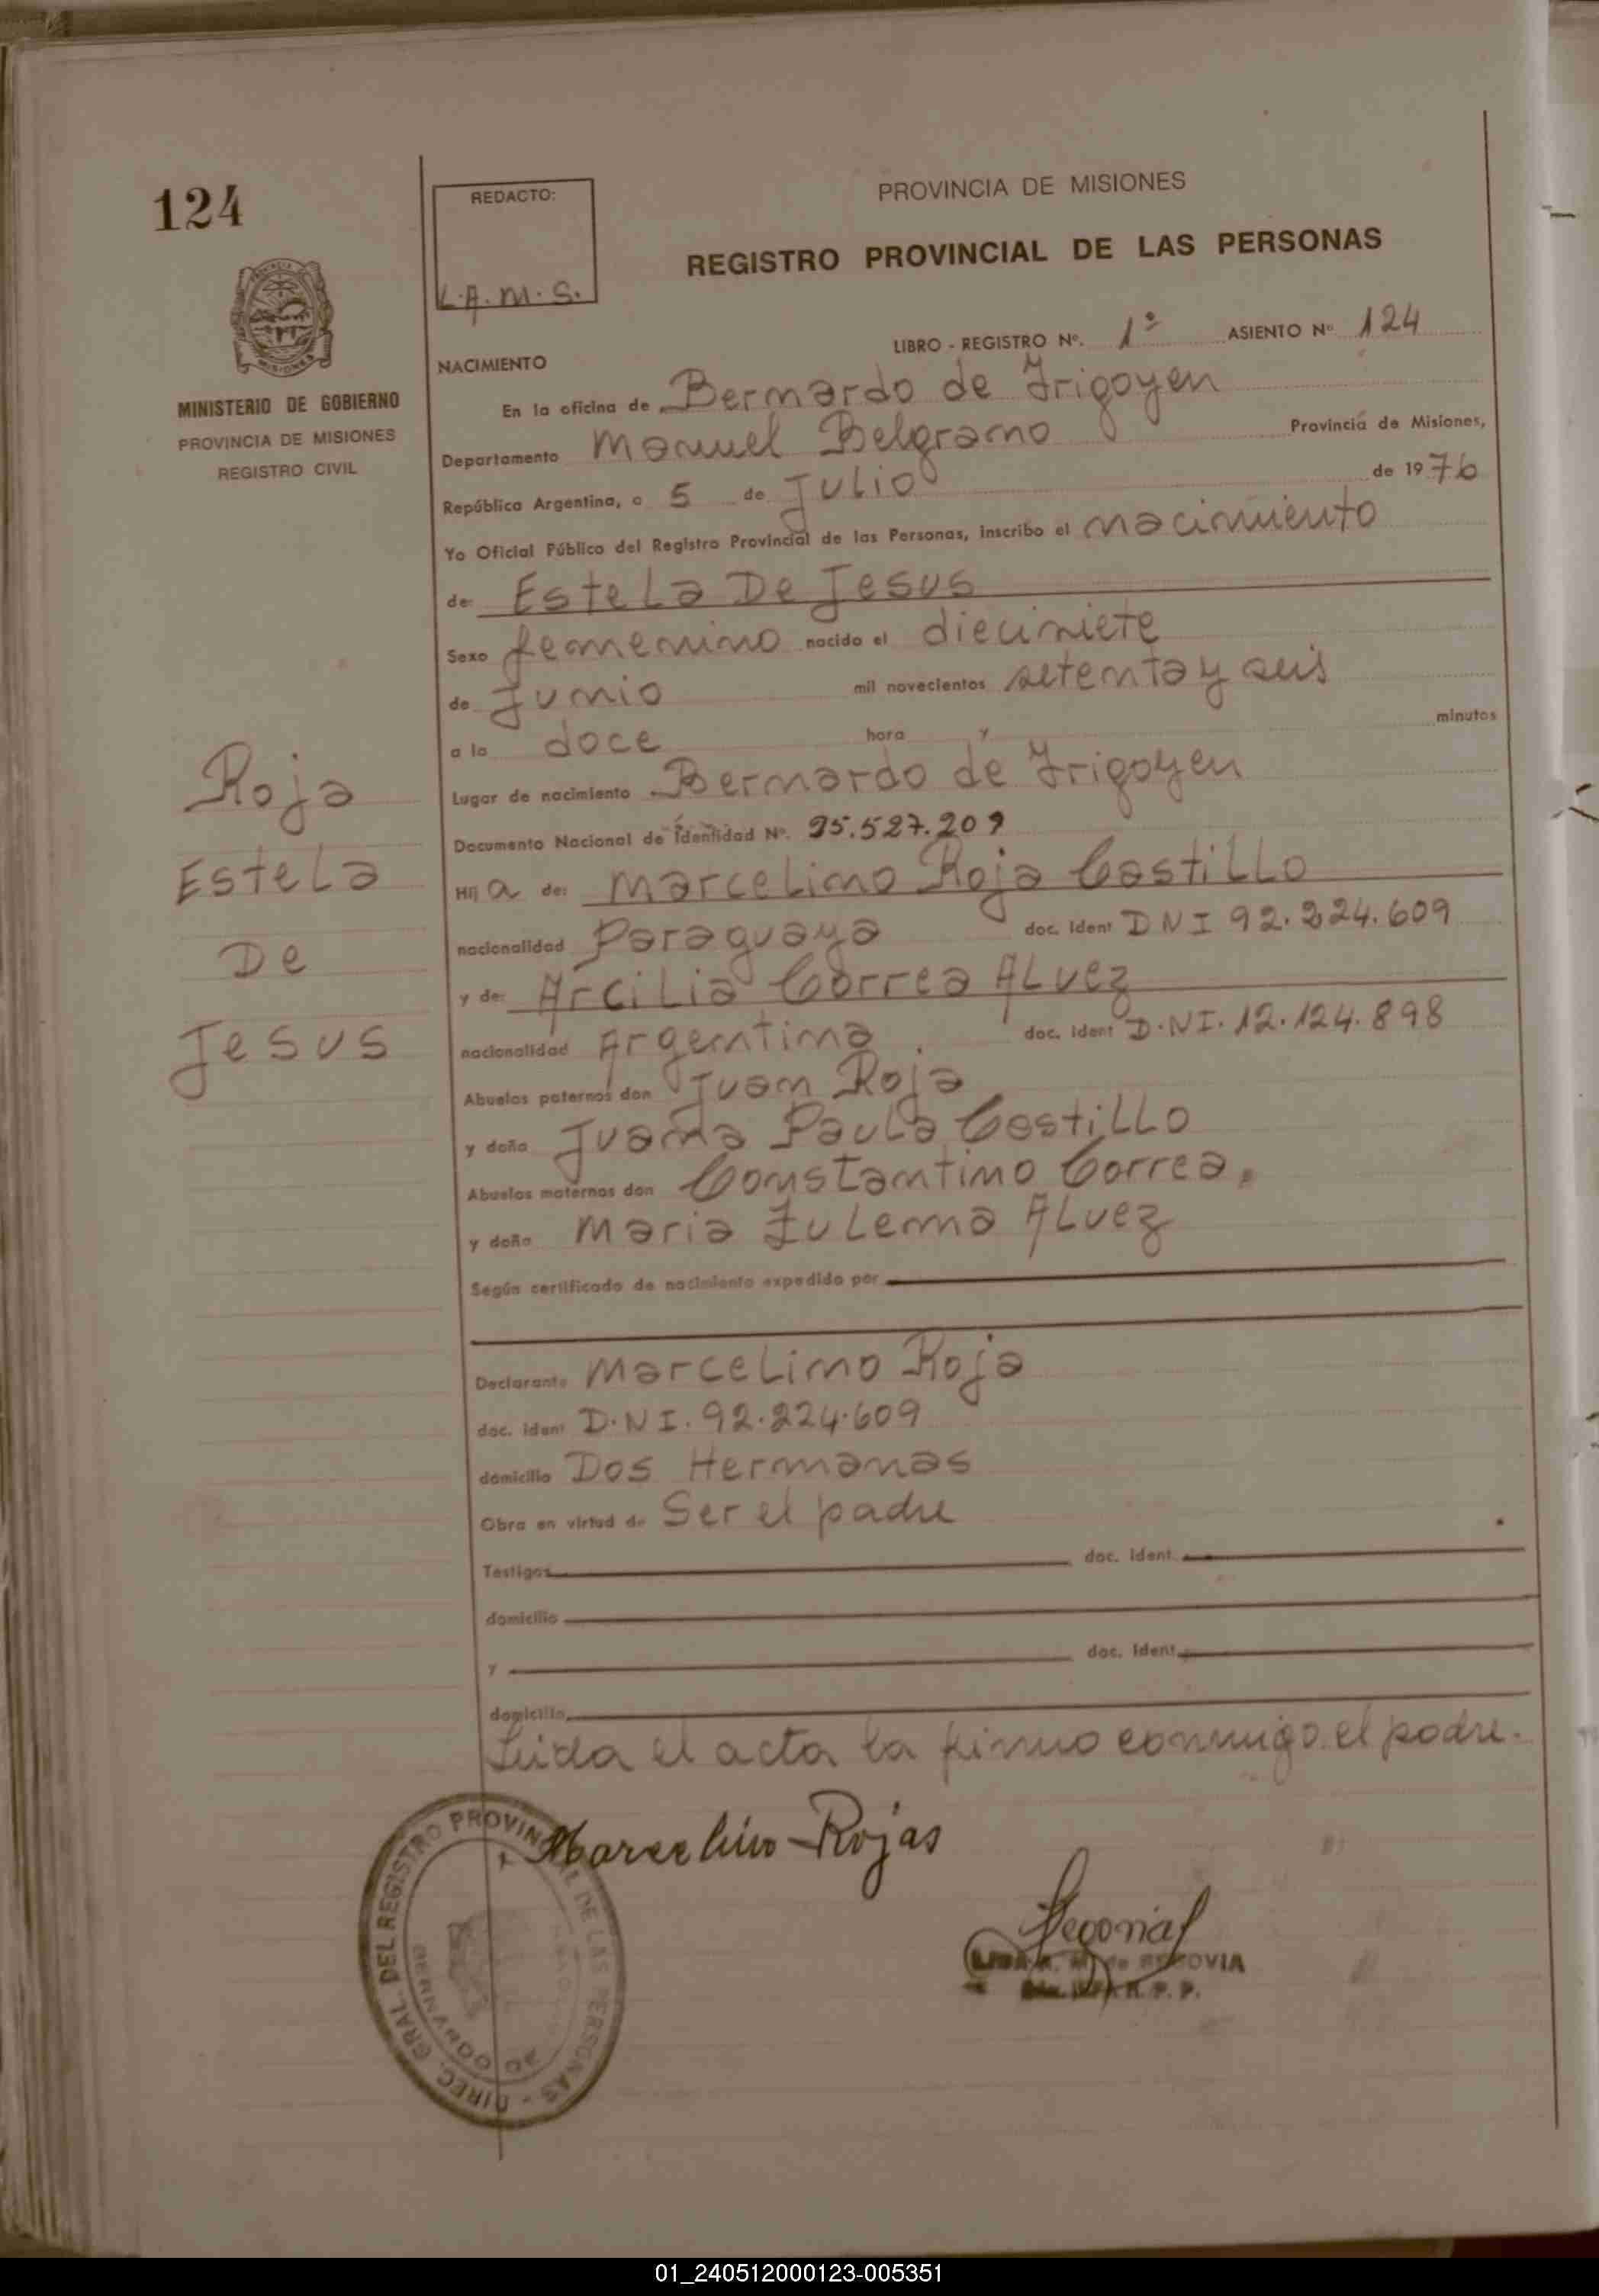 124
REDACTO:
L.A.M.S.
PROVINCIA DE MISIONES
REGISTRO PROVINCIAL DE LAS PERSONAS
LIBRO - REGISTRO Nº. 1º ASIENTO Nº 124
MINISTERIO DE GOBIERNO
PROVINCIA DE MISIONES
REGISTRO CIVIL
NACIMIENTO
En la oficina de Bernardo de Irigoyen
Departamento Manuel Belgrano Provincia de Misiones,
República Argentina, a 5 de Julio de 1976
Yo Oficial Público del Registro Provincial de las Personas, inscribo el nacimiento
de Estela De Jesus
Sexo femenino nacido el diecisiete
de Junio mil novecientos setenta y seis
a la doce hora y minutos
Lugar de nacimiento Bernardo de Irigoyen
Documento Nacional de Identidad Nº. 25.527.209
Hija de: Marcelino Roja Castillo
nacionalidad Paraguaya doc. Ident DNI 92.224.609
y de: Arcilia Correa Alvez
nacionalidad Argentina doc. Ident D.NI.12.124.898
Abuelos paternos don Juan Roja
y doña Juana Paula Castillo
Abuelos maternos don Constantino Correa,
y doña Maria Zulema Alvez
Según certificado de nacimiento expedido por
Declarante Marcelino Roja
doc. Ident D.NI.92.224.609
domicilio Dos Hermanas
Obra en virtud de Ser el padre
Testigos doc. Ident.
domicilio
y doc. Ident.
domicilio
Leida el acta la firmo conmigo el padre.
Roja
Estela
De
Jesus
Marcelino Rojas
DIREC. GRAL. DEL REGISTRO PROVINCIAL DE LAS PERSONAS
BERNARDO DE
de SEGOVIA
R. P. P.
01_240512000123-005351